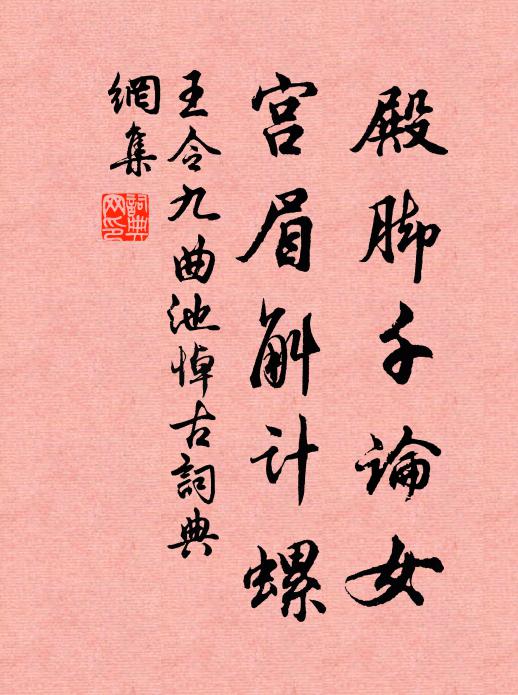 殿脚千論女
宮眉斛計螺
王令九曲池悼古詞典
網集
詞典
网印